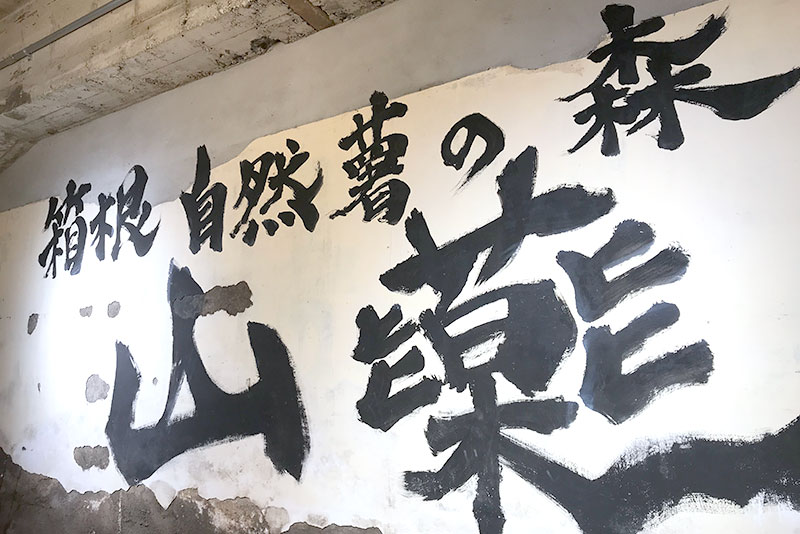 箱根自然薯の森
山藥